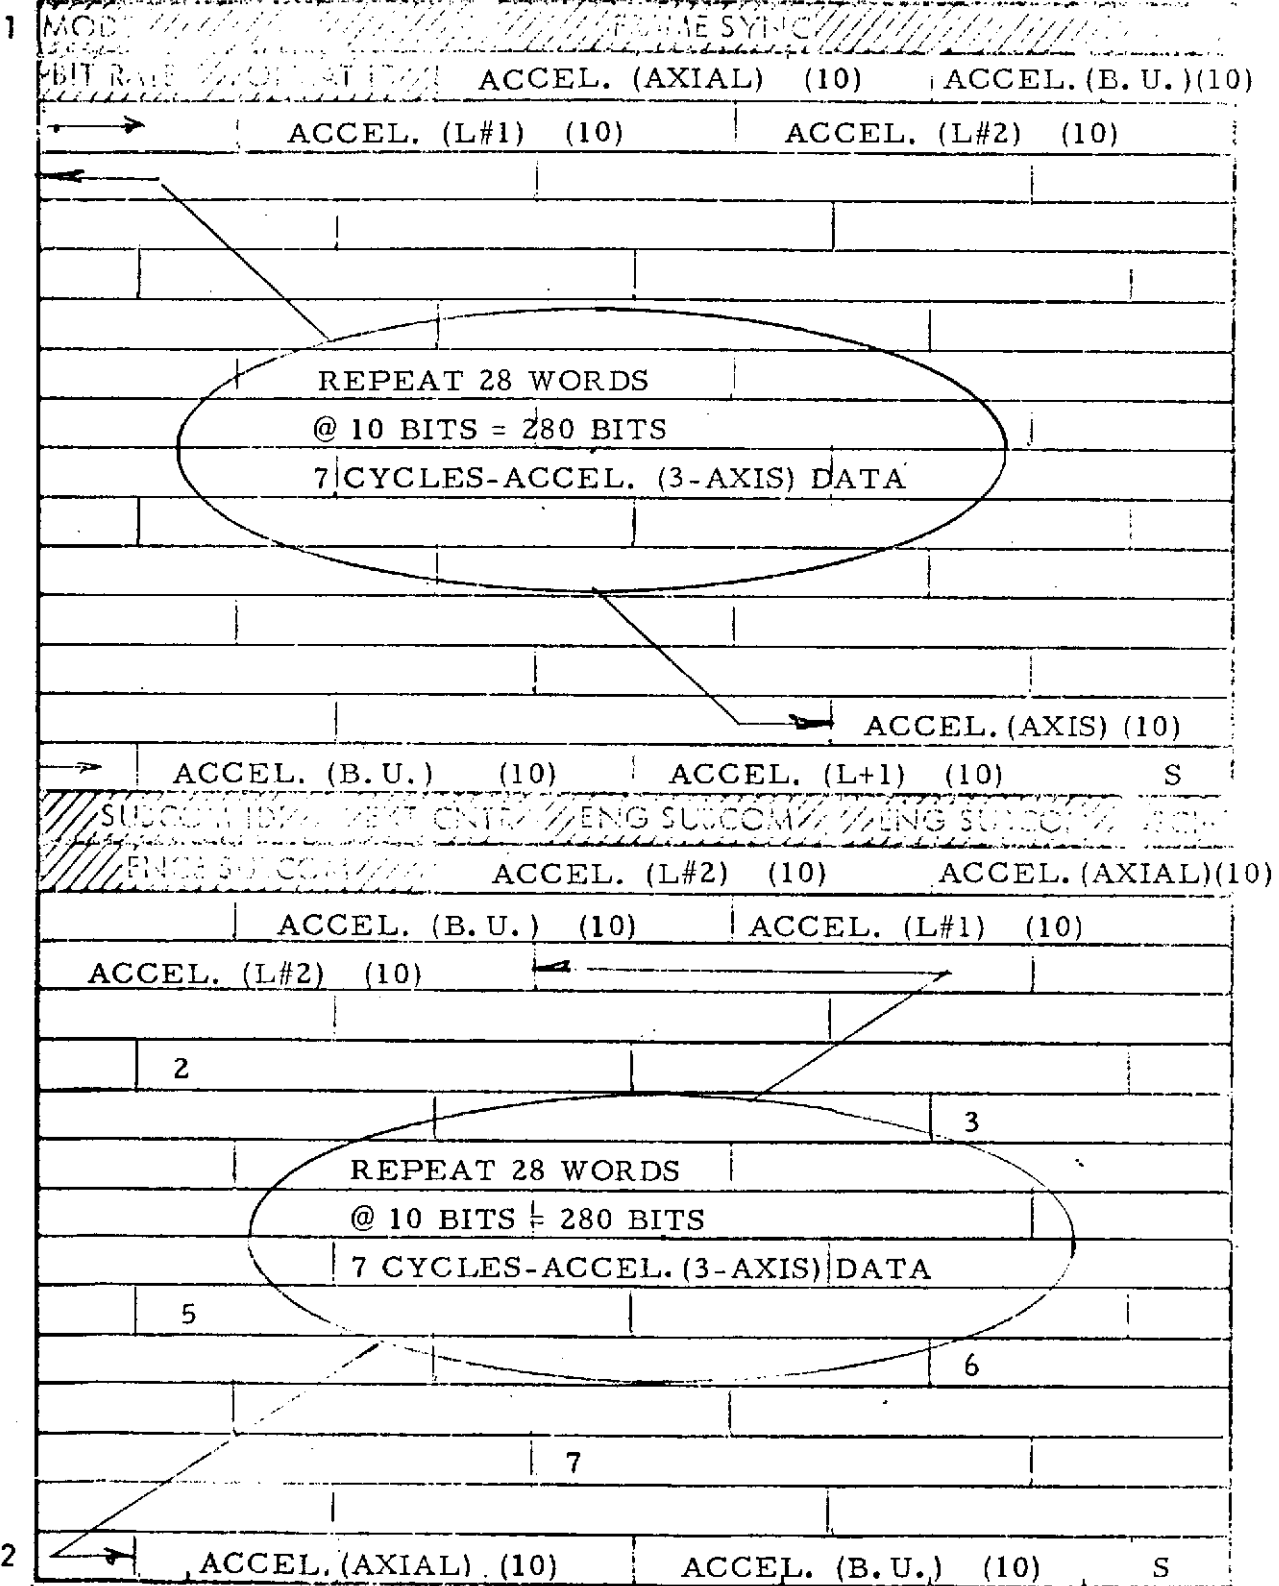 1 MOD FRAME SYNC
BIT RATE FORMAT ID ACCEL. (AXIAL) (10) ACCEL. (B. U. )(10)
ACCEL. (L#1) (10) ACCEL. (L#2) (10)
REPEAT 28 WORDS
@ 10 BITS = 280 BITS
7 CYCLES-ACCEL. (3-AXIS) DATA
ACCEL. (AXIS) (10)
ACCEL. (B. U. ) (10) ACCEL. (L+1) (10) S
SUBCOM ID EXT CNTR ENG SUBCOM ENG SUBCOM SCI-
ENCE SUBCOM ACCEL. (L#2) (10) ACCEL. (AXIAL)(10)
ACCEL. (B. U. ) (10) ACCEL. (L#1) (10)
ACCEL. (L#2) (10)
2
3
REPEAT 28 WORDS
@ 10 BITS = 280 BITS
7 CYCLES-ACCEL. (3-AXIS) DATA
5
6
7
2 ACCEL. (AXIAL) (10) ACCEL. (B. U. ) (10) S